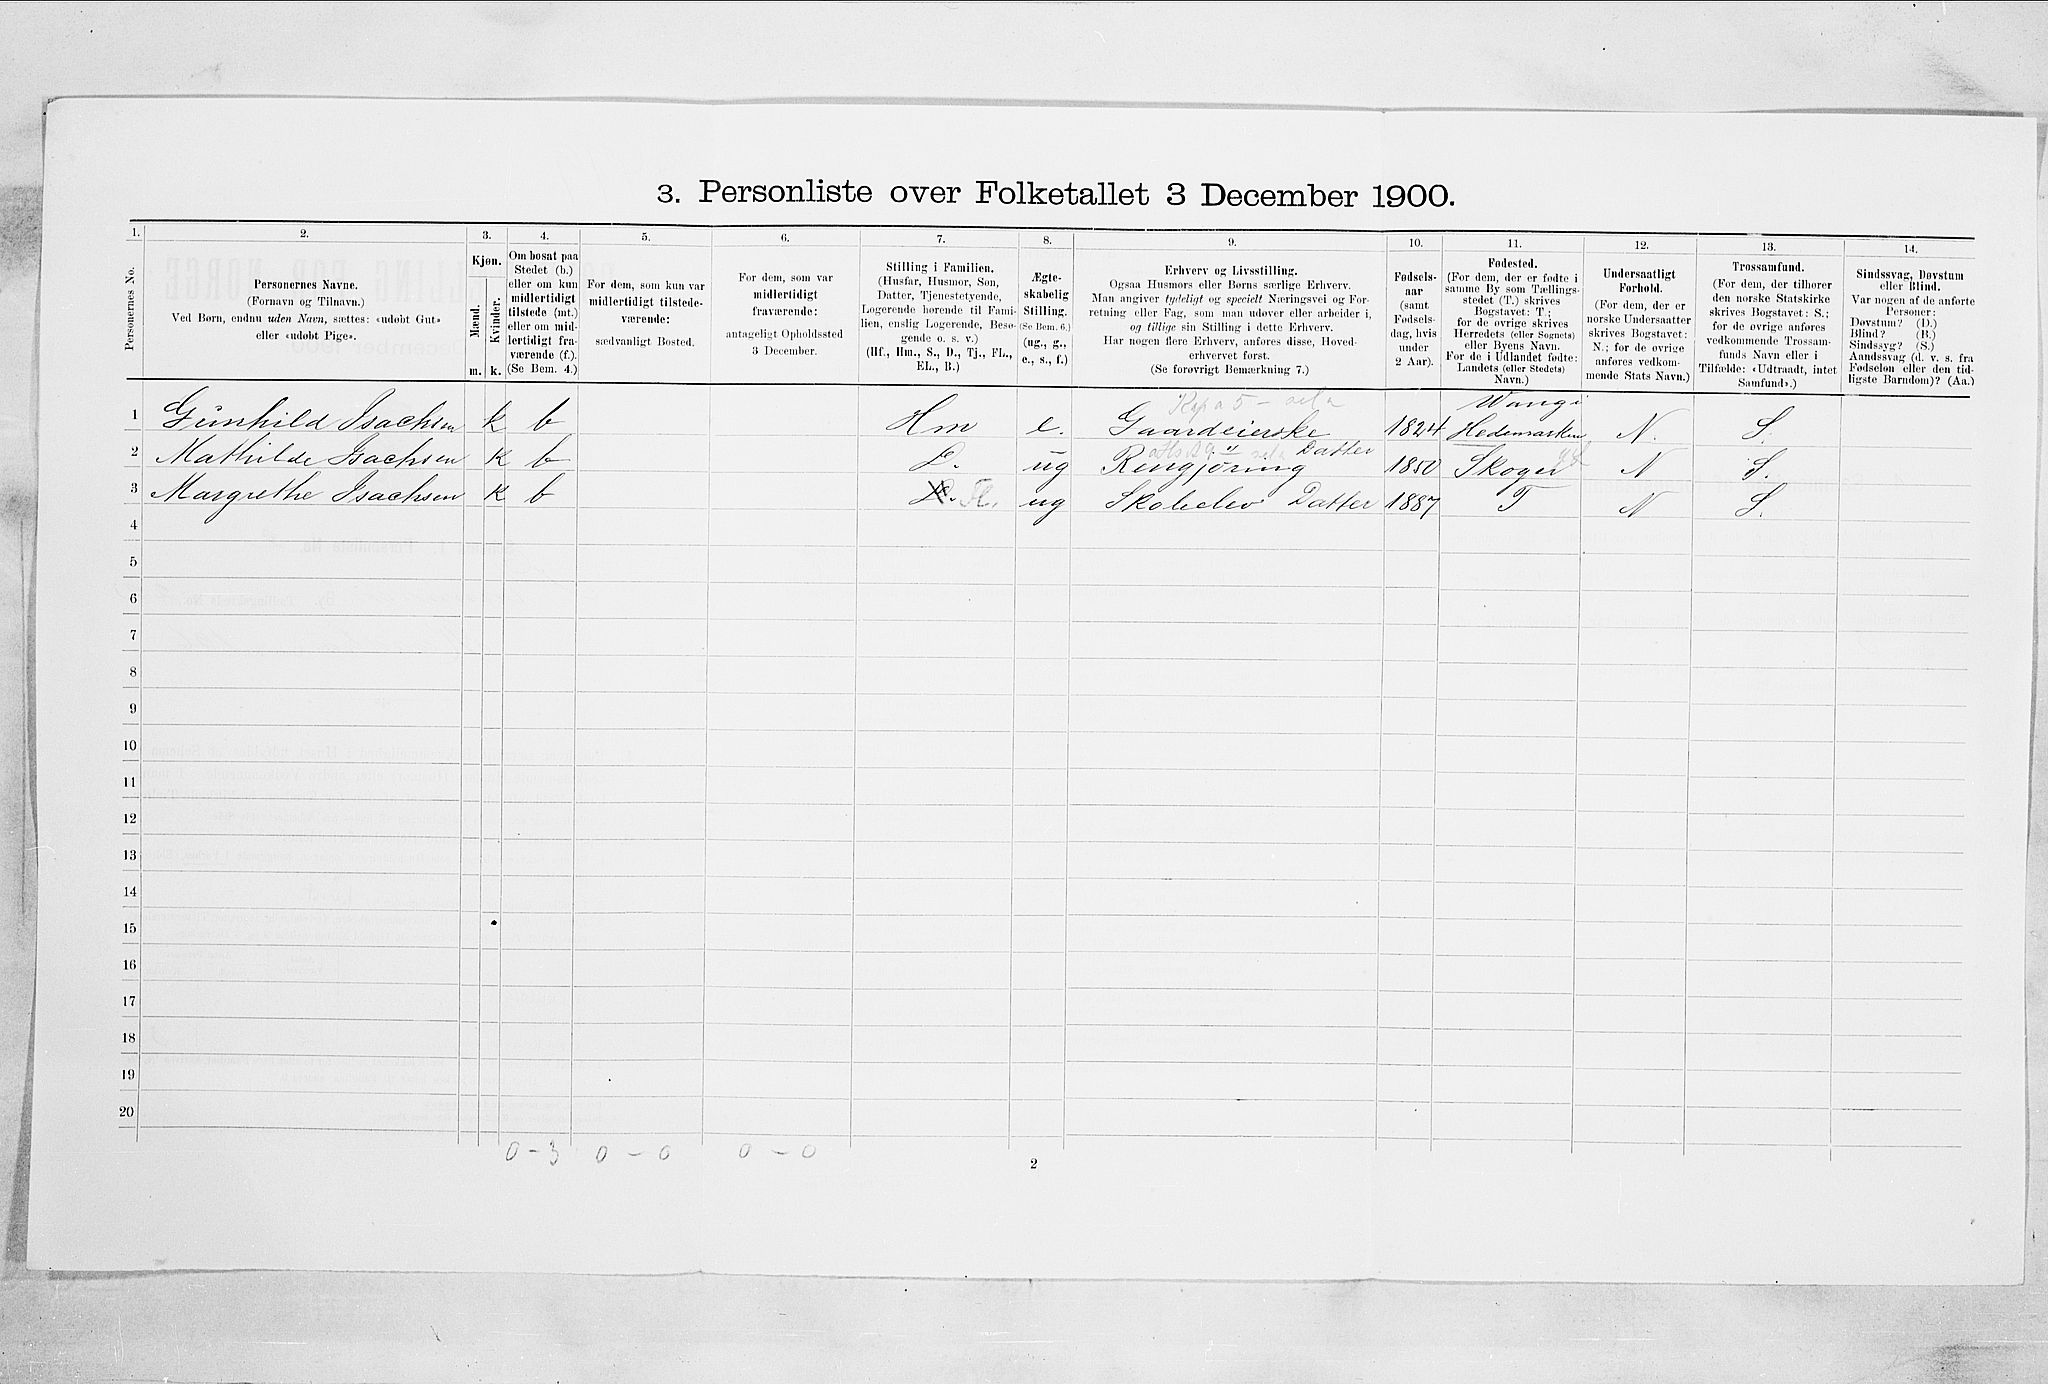 3. Personliste over Folketallet 3 December 1900.
1. 2. 3. 4. 5. 6. 7. 8. 9. 10. 11. 12. 13. 14.
Personernes No.
Personernes Navne.
(Fornavn og Tilnavn.)
Ved Børn, endnu uden Navn, sættes: «udøbt Gut»
eller «udøbt Pige».
Kjøn.
Mænd.
Kvinder.
m. k.
Om bosat paa
Stedet (b.)
eller om kun
midlertidigt
tilstede (mt.)
eller om mid-
lertidigt fra-
værende (f.).
(Se Bem. 4.)
For dem, som kun var
midlertidigt tilstede-
værende:
sædvanligt Bosted.
For dem, som var
midlertidigt
fraværende:
antageligt Opholdssted
3 December.
Stilling i Familien.
(Husfar, Husmor, Søn,
Datter, Tjenestetyende,
Logerende hørende til Fami-
lien, enslig Logerende, Besø-
gende o. s. v.)
(Hf., Hm., S., D., Tj., FL.,
EL., B.)
Ægte-
skabelig
Stilling.
(Se Bem. 6.)
(ug., g.,
e., s., f.)
Erhverv og Livsstilling.
Ogsaa Husmors eller Børns særlige Erhverv.
Man angiver tydeligt og specielt Næringsvei og For-
retning eller Fag, som man udøver eller arbeider i,
og tillige sin Stilling i dette Erhverv.
Har nogen flere Erhverv, anføres disse, Hoved-
erhvervet først.
(Se forøvrigt Bemærkning 7.)
Fødsels-
aar
(samt
Fødsels-
dag, hvis
under
2 Aar).
Fødested.
(For dem, der er fødte i
samme By som Tællings-
stedet (T.) skrives
Bogstavet: T.;
for de øvrige skrives
Herredets (eller Sognets)
eller Byens Navn.
For de i Udlandet fødte:
Landets (eller Stedets)
Navn.)
Undersaatligt
Forhold.
(For dem, der er
norske Undersaatter
skrives Bogstavet:
N.; for de øvrige
anføres vedkom-
mende Stats Navn.)
Trossamfund.
(For dem, der tilhører
den norske Statskirke
skrives Bogstavet: S.;
for de øvrige anføres
vedkommende Trossam-
funds Navn eller i
Tilfælde: «Udtraadt, intet
Samfund».)
Sindssvag, Døvstum
eller Blind.
Var nogen af de anførte
Personer:
Døvstum? (D.)
Blind? (B.)
Sindssyg? (S.)
Aandssvag (d. v. s. fra
Fødselen eller den tid-
ligste Barndom)? (Aa.)
1 Gunhild Isachsen k b Hm e. Gaardeierske 1824 Hedemarken N. S.
2 Mathilde Isachsen k b D. ug Rengjøring Datter 1850 Skoger N S.
3 Margrethe Isachsen k b D. FL. ug Skoleelev Datter 1887 T N S.
4
5
6
7
8
9
10
11
12
13
14
15
16
17
18
19
20
0 - 3 0 - 0 0 - 0
2